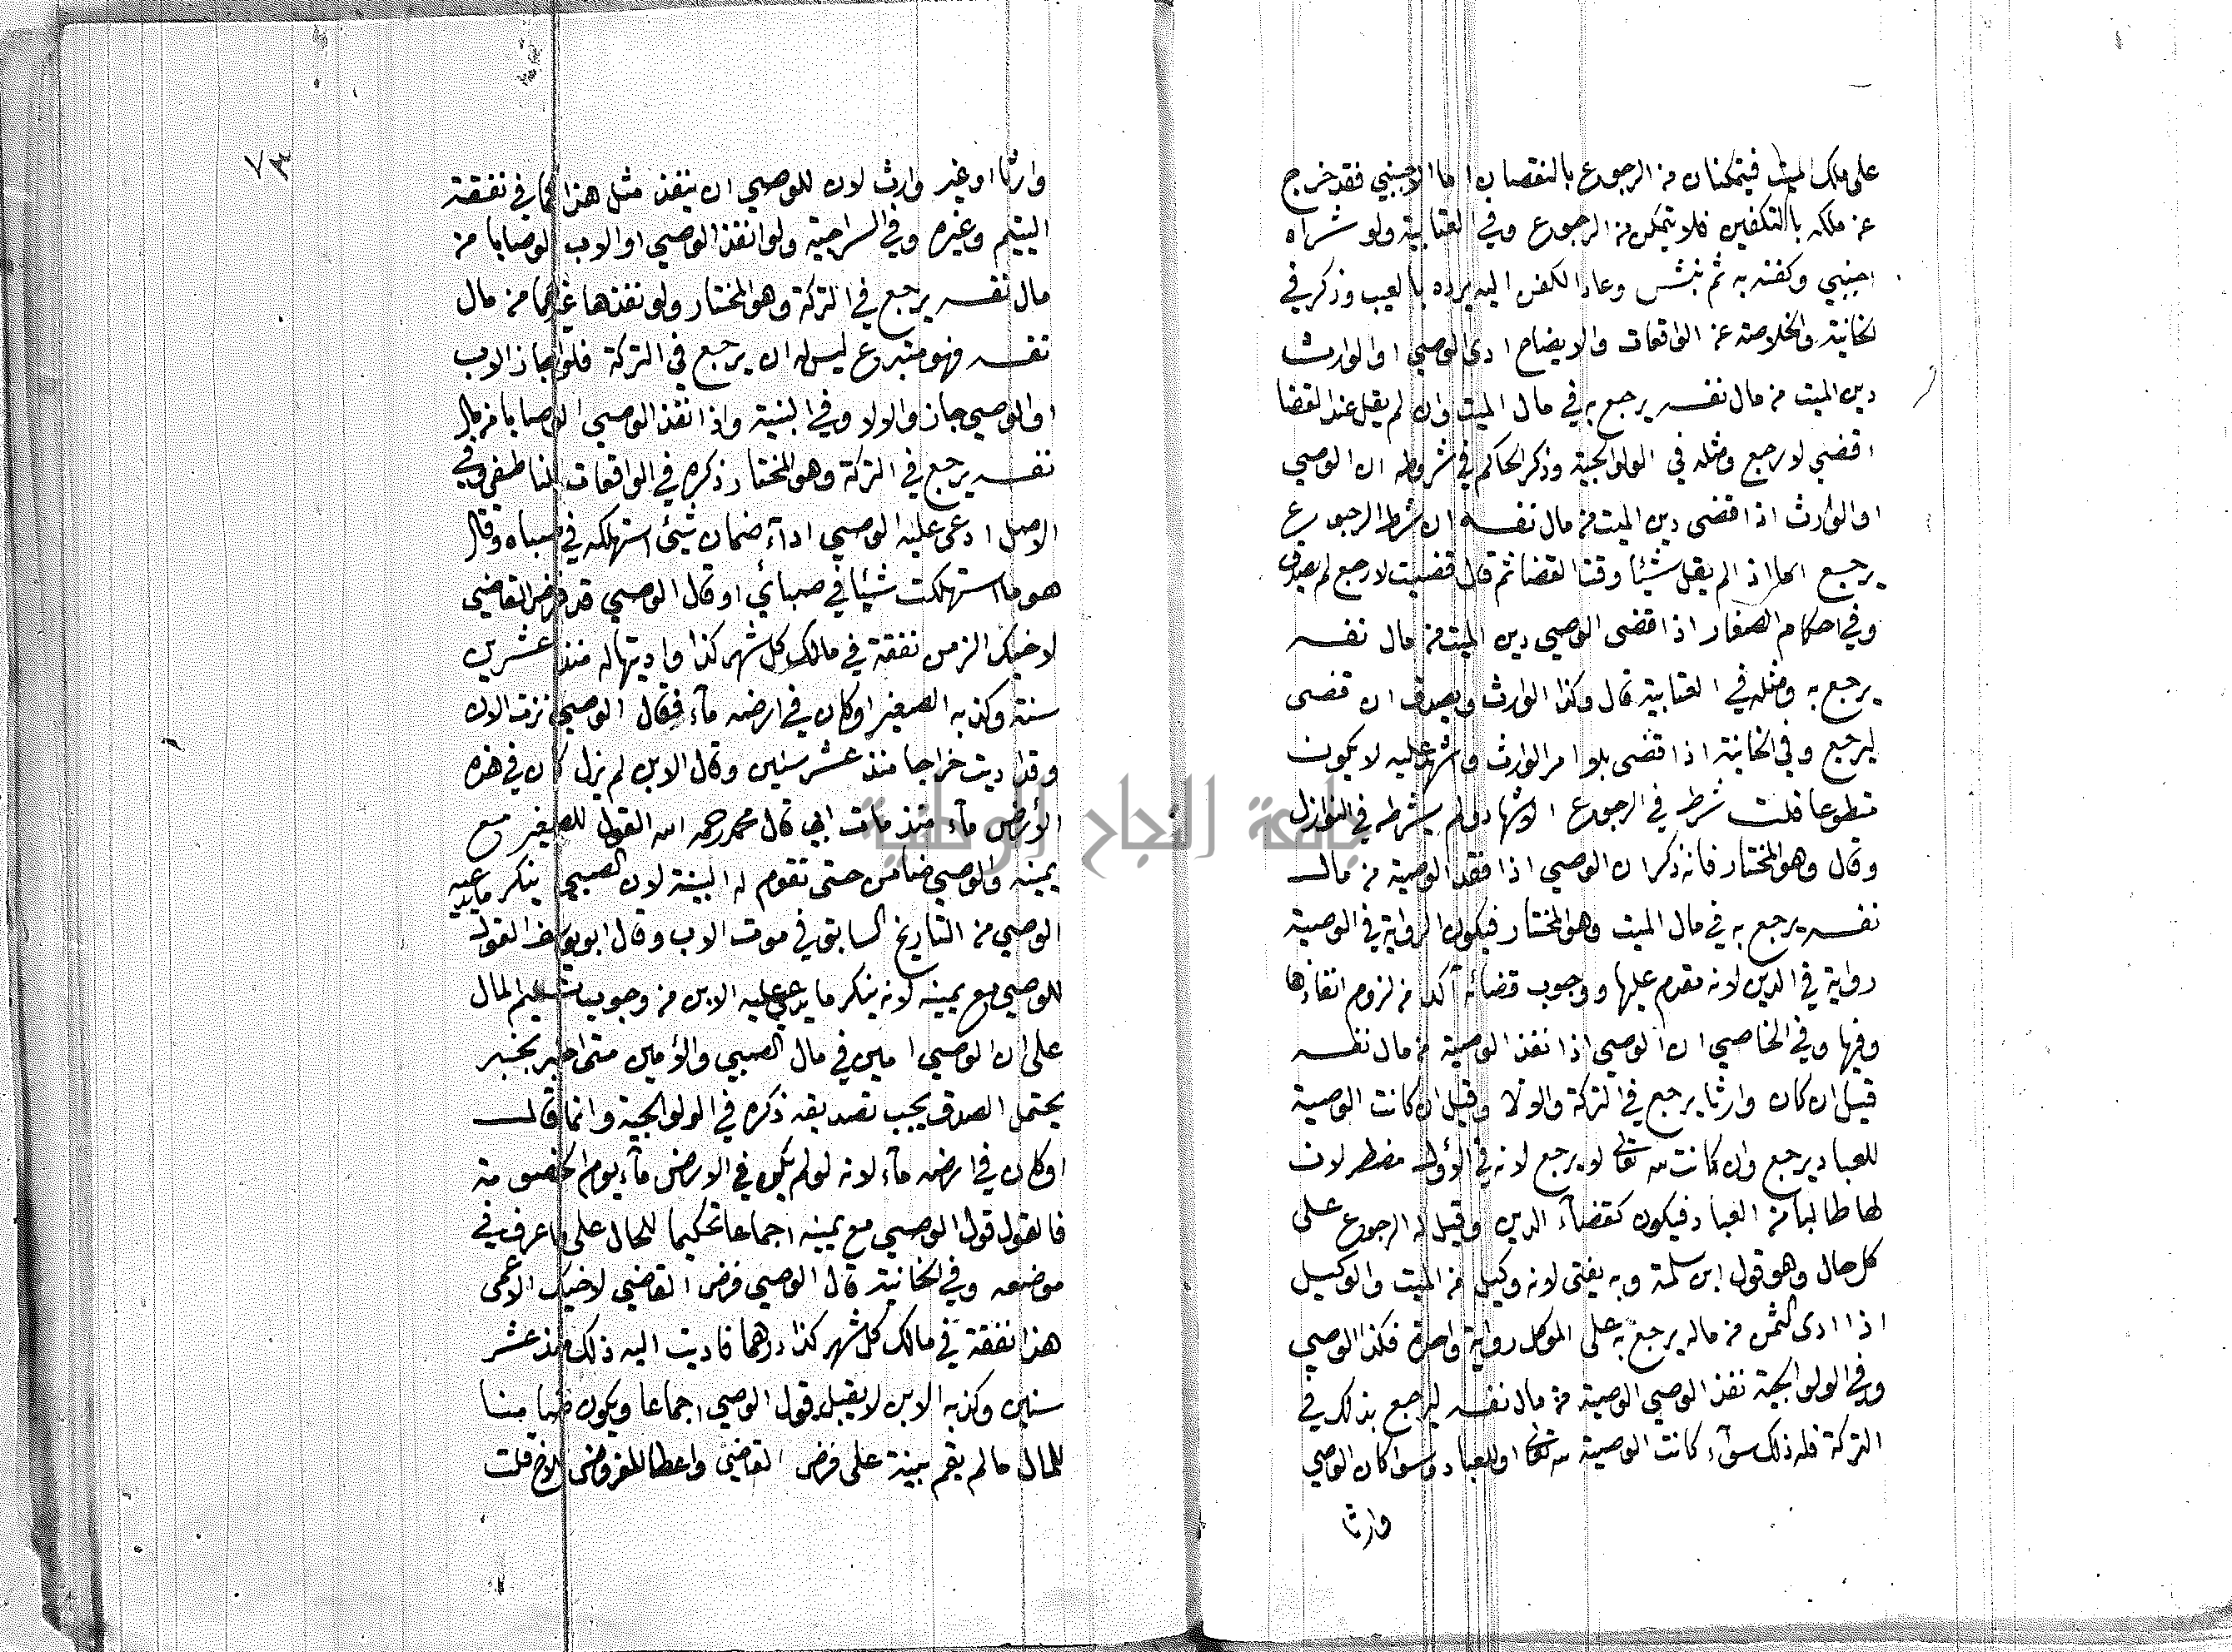 على ملك الميت فيتمكنان من الرجوع بالنقصان اما الاجنبي فقد خرج
عن ملكه بالتكفين فلا يتمكن من الرجوع وفي العتابية ولو شراه
اجنبي وكفنه به ثم نبش وعاد الكفن اليه يرده بالعيب وذكر في
الخانية والخلاصة عن الواقعات والايضاح ادى الوصي او الوارث
دين الميت من مال نفسه يرجع به في مال الميت وان لم يقل عند القضا
اقضي لارجع ومثله في الولوالجية وذكر الحاكم في شروطه ان الوصي
او الوارث اذا قضى دين الميت من مال نفسه ان شرط الرجوع
يرجع اما اذ الم يقل شيئا وقت القضا ثم قال قضيت لارجع لم يصدق
وفي احكام الصغار اذا قضى الوصي دين الميت من مال نفسه
يرجع به ومثله في العتابية قال وكذا الوارث ويصدق ان قضى
ليرجع وفي الخانية اذا قضى بلا امر الوارث واشهد عليه لا يكون
متطوعا قلت شرط في الرجوع الاشهاد ولم يشرطه في النوازل
وقال وهو المختار فانه ذكر ان الوصي اذا نفذ الوصية من مال
نفسه يرجع به في مال الميت وهو المختار فيكون الرواية في الوصية
رواية في الدين لانه مقدم عليها ووجوب قضائه آكد من لزوم انفاذها
وفيها وفي الخاصي ان الوصي اذا نفذ الوصية من مال نفسه
قيل ان كان وارثا يرجع في التركة والا لا وقيل ان كانت الوصية
للعباد يرجع وان كانت لله تعالى لا يرجع لانه في الاول مضطر لان
لها طالبا من العباد فيكون كقضاء الدين وقيل له الرجوع على
كل حال وهو قول ابن سلمة وبه يفتى لانه وكيل من الميت والوكيل
اذا ادى الثمن من ماله يرجع به على الموكل رواية واحدة فكذا الوصي
وفي الولوالجية نفذ الوصي الوصية من مال نفسه ليرجع بذلك في
التركة فله ذلك سوآء كانت الوصية لله تعالى او للعباد وسوا كان الوصي
وارثا
٧٣
وارثا او غير وارث لان للوصي ان ينفذ مثل هذا كما في نفقة
اليتيم وغيره وفي السراجية ولو انفذ الوصي او الاب الوصايا من
مال نفسه يرجع في التركة وهو المختار ولو نفذها غيرهما من مال
نفسه فهو متبرع ليس له ان يرجع في التركة فلو اجاز الاب
او الوصي جاز والا لا وفي البنية واذا نفذ الوصي الوصايا من مال
نفسه يرجع في التركة وهو المختار ذكره في الواقعات للناطفي وفي
الاصل ادعى عليه الوصي اداء ضمان شيئ استهلكه في صباه وقال
هو ما استهلكت شيئا في صبائي او قال الوصي قد فرض القاضي
لاخيك الزمن نفقة في مالك كل شهر كذا واديتها له منذ عشرين
سنة وكذبه الصغير او كان في ارضه مآء فقال الوصي نزت الان
وقد اديت خراجها منذ عشر سنين وقال الابن لم يزل كان في هذه
الأرض مآء منذ مات ابي قال محمد رحمه الله القول للصغير مع
يمينه والوصي ضامن حتى تقوم له البينة لان الصبي ينكر ما يدعيه
الوصي من التاريخ السابق في موت الاب وقال ابو يوسف القول
للوصي مع يمينه لانه ينكر ما يدعي عليه الابن من وجوب تسليم المال
على ان الوصي امين في مال الصبي والأمين متى اخبر بخبر
يحتمل الصدق يجب تصديقه ذكره في الولوالجية وانما قال
او كان في ارضه مآء لانه لو لم يكن في الارض مآء يوم الخصومة
فالقول قول الوصي مع يمينه اجماعا تحكيما للحال على ما عرف في
موضعه وفي الخانية قال الوصي فرض القاضي لاخيك الاعمى
هذا نفقة في مالك كل شهر كذا درهما فاديت اليه ذلك منذ عشر
سنين وكذبه الابن لا يقبل قول الوصي اجماعا ويكون ضامنا
للمال ما لم يقم بينة على فرض القاضي واعطا المفروض للاخ قلت
جامعة النجاح الوطنية